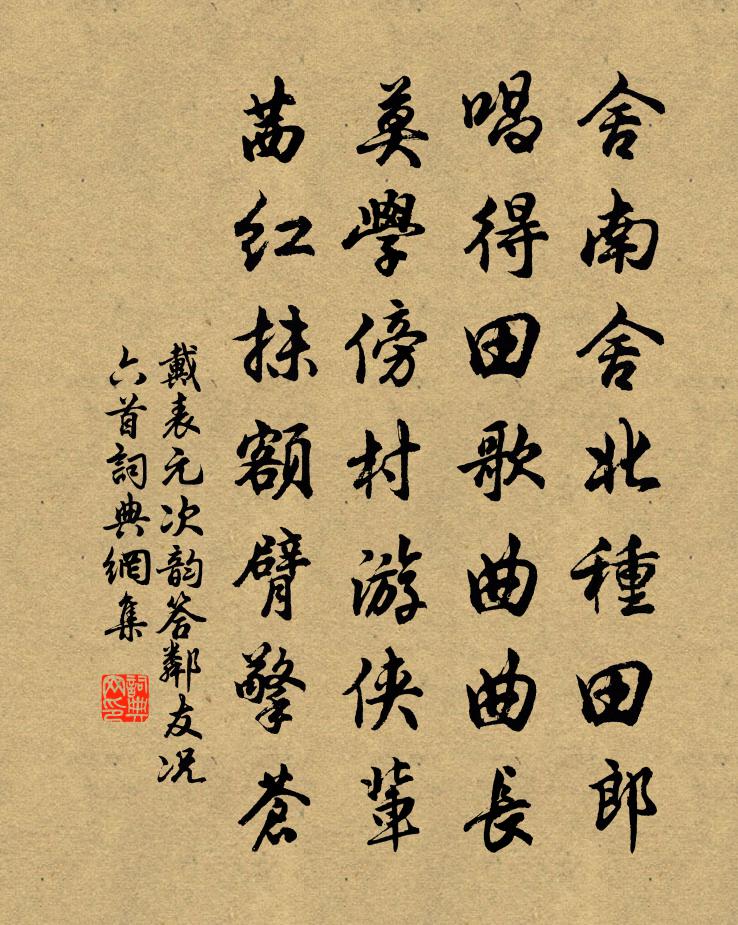 舍南舍北種田郎
唱得田歌曲曲長
莫學傍村游俠輩
茜紅抹額臂擎蒼
戴表元次韵答鄰友况
六首詞典網集
詞典
网印